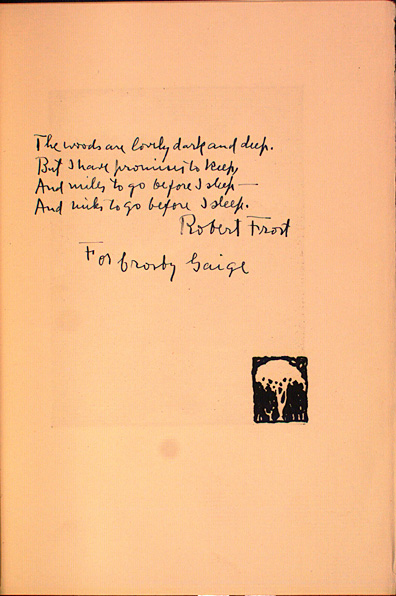 The woods are lovely dark and deep.
But I have promises to keep,
And miles to go before I sleep—
And miles to go before I sleep.
Robert Frost
For Crosby Gaige